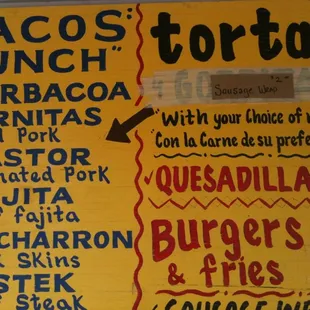 ACOS:
UNCH"
RBACOA
RNITAS
Pork
ASTOR
nated Pork
JITA
fajita
CHARRON
Skins
STEK
Steak
torta
Sausage Wow
"With your Choice of
"Con la Carne de su prefe
QUESADILLA
Burgers
& fries